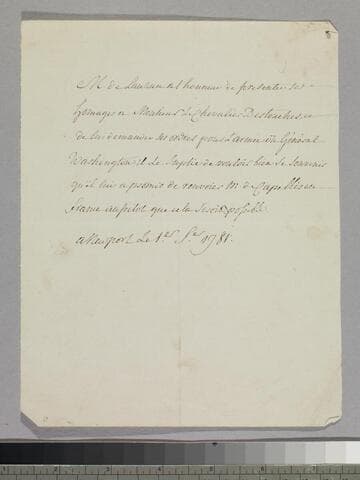 M. de Lauzun a l'honneur de presenter ses
homages a Monsieur le Chevalier Destouches et
de lui demander ses ordres pour l'armée du Général
Washington il le Suplie de vouloir bien se Souvenir
qu'il lui a promis de renvoier M. de Capellis en
france aussitot que cela Seroit possible
a Newport Le 1er 1781.